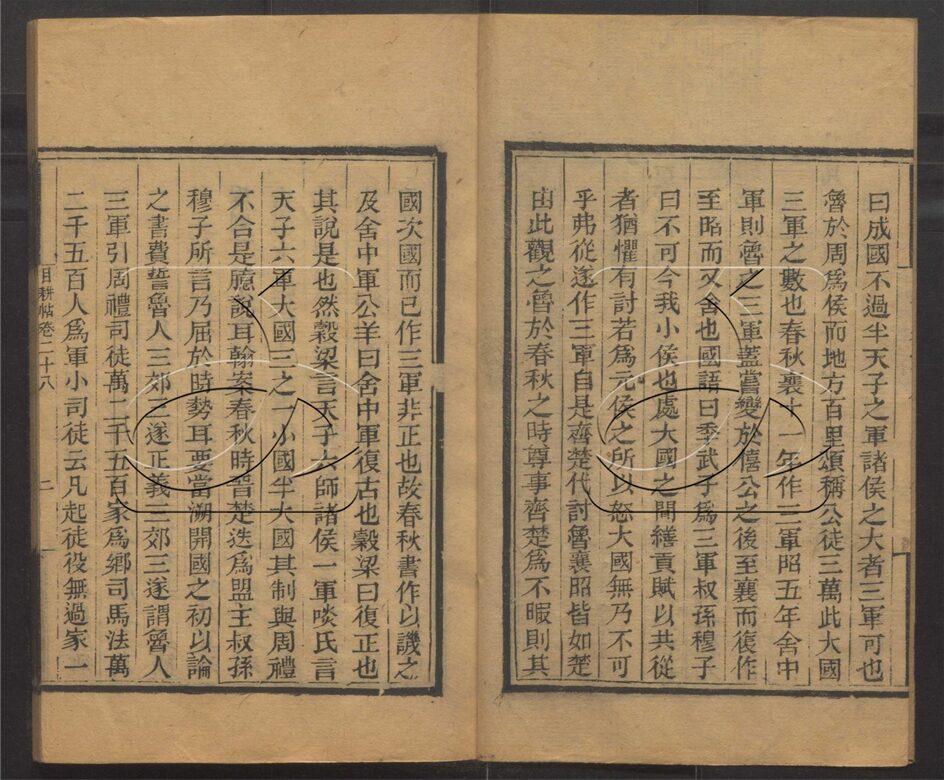 曰成國不過半天子之軍諸侯之大者三軍可也
魯於周爲侯而地方百里頌稱公徒三萬此大國
三軍之數也春秋襄十一年作三軍昭五年舍中
軍則魯之三軍蓋嘗變於僖公之後至襄而復作
至昭而又舍也國語曰季武子爲三軍叔孫穆子
曰不可今我小侯也處大國之間繕貢賦以共從
者猶懼有討若爲元侯之所以怒大國無乃不可
乎弗從遂作三軍自是齊楚代討魯襄昭皆如楚
由此觀之魯於春秋之時尊事齊楚爲不暇則其
國次國而已作三軍非正也故春秋書作以譏之
及舍中軍公羊曰舍中軍復古也穀梁曰復正也
其說是也然穀梁言天子六師諸侯一軍啖氏言
天子六軍大國三之一小國半大國其制與周禮
不合是臆說耳翰案春秋時晉楚迭爲盟主叔孫
穆子所言乃屈於時勢耳要當溯開國之初以論
之書費誓魯人三郊三遂正義三郊三遂謂魯人
三軍引周禮司徒萬二千五百家爲鄉司馬法萬
二千五百人爲軍小司徒云凡起徒役無過家一
目耕帖卷二十八
二